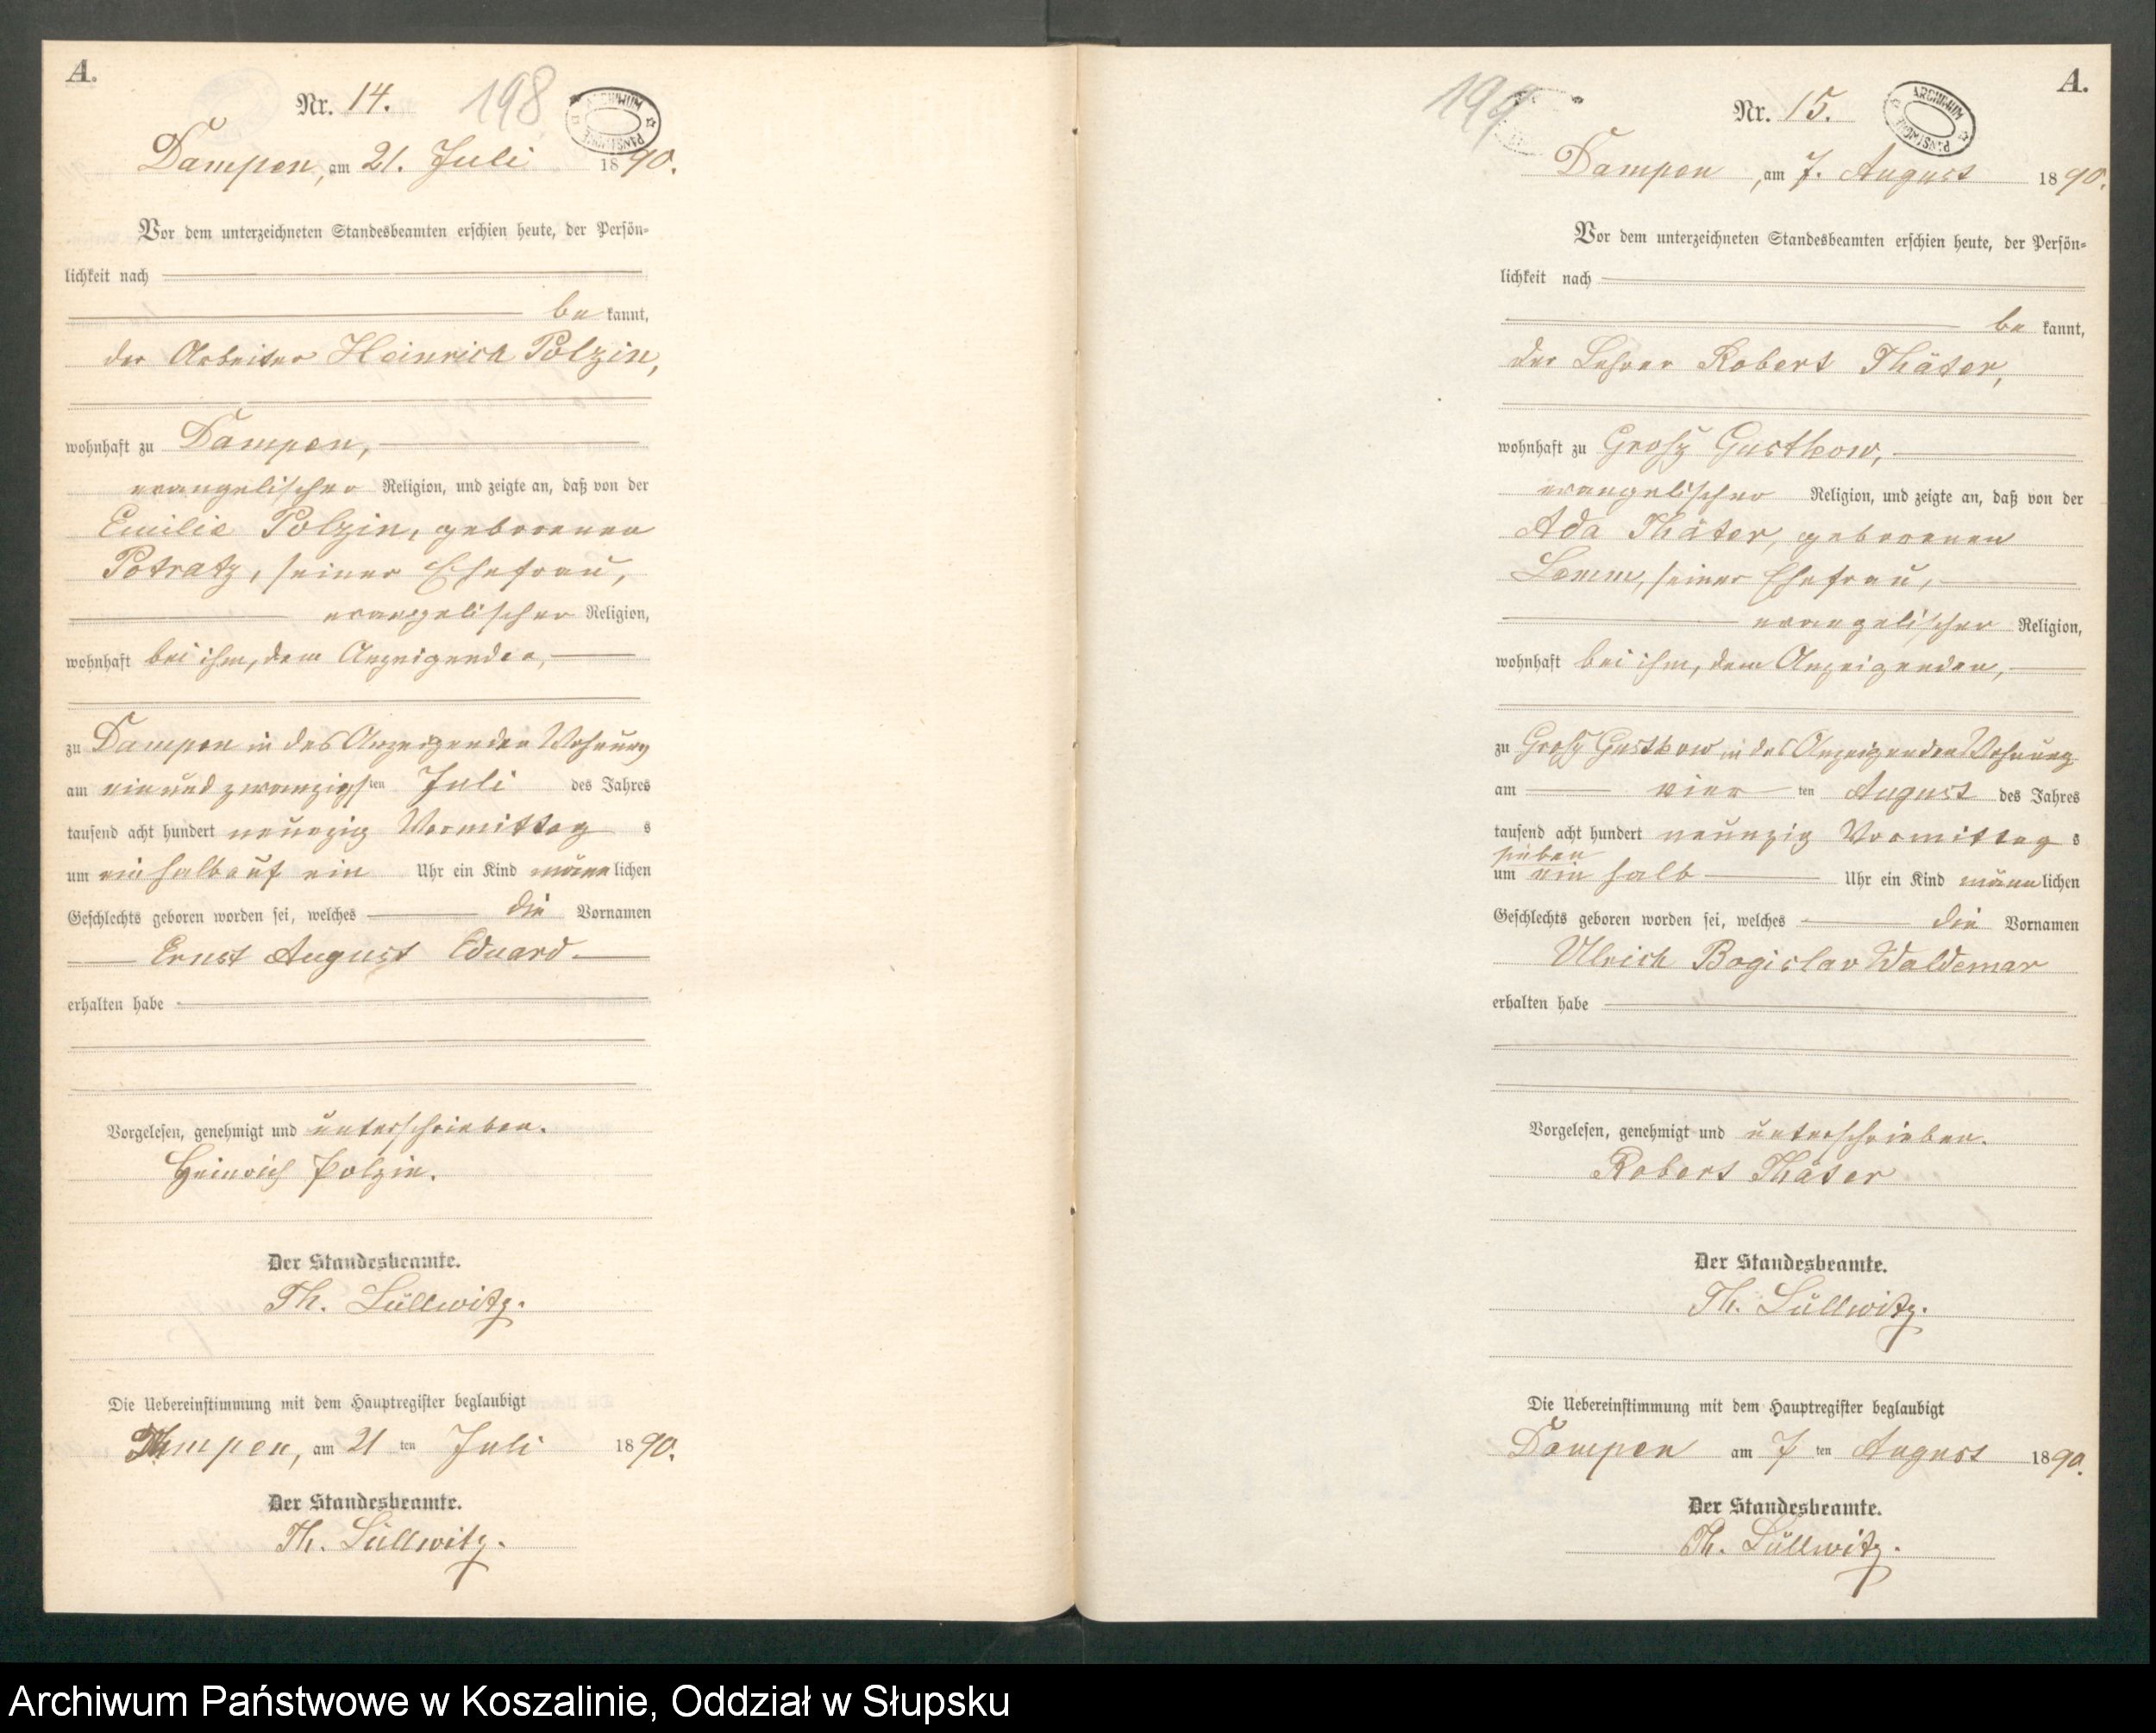 A.
Nr. 14.
198
ARCHIWUM PAŃSTWOWE
Dampen, am 21. Juli 1890.
Vor dem unterzeichneten Standesbeamten erschien heute, der Persön-
lichkeit nach
be kannt,
der Arbeiter Heinrich Polzin,
wohnhaft zu Dampen,
evangelischer Religion, und zeigte an, daß von der
Emilie Polzin, geborenen
Potratz, seiner Ehefrau,
evangelischer Religion,
wohnhaft bei ihm, dem Anzeigenden,
zu Dampen in des Anzeigenden Wohnung
am einundzwanzigsten Juli des Jahres
tausend acht hundert neunzig Vormittags
um ein halb auf ein Uhr ein Kind männlichen
Geschlechts geboren worden sei, welches die Vornamen
Ernst August Eduard
erhalten habe
Vorgelesen, genehmigt und unterschrieben.
Heinrich Polzin.
Der Standesbeamte.
Th. Lüllwitz.
Die Uebereinstimmung mit dem Hauptregister beglaubigt
Dampen, am 21 ten Juli 1890.
Der Standesbeamte.
Th. Lüllwitz.
A.
199
Nr. 15.
ARCHIWUM PAŃSTWOWE
Dampen, am 7. August 1890.
Vor dem unterzeichneten Standesbeamten erschien heute, der Persön-
lichkeit nach
be kannt,
der Lehrer Robert Thäter,
wohnhaft zu Groß Gustkow,
evangelischer Religion, und zeigte an, daß von der
Ada Thäter, geborenen
Lemm, seiner Ehefrau,
evangelischer Religion,
wohnhaft bei ihm, dem Anzeigenden,
zu Groß Gustkow in des Anzeigenden Wohnung
am vier ten August des Jahres
tausend acht hundert neunzig Vormittags
sieben
um ein halb Uhr ein Kind männlichen
Geschlechts geboren worden sei, welches die Vornamen
Ulrich Bogislav Waldemar
erhalten habe
Vorgelesen, genehmigt und unterschrieben.
Robert Thäter
Der Standesbeamte.
Th. Lüllwitz.
Die Uebereinstimmung mit dem Hauptregister beglaubigt
Dampen am 7 ten August 1890.
Der Standesbeamte.
Th. Lüllwitz.
Archiwum Państwowe w Koszalinie, Oddział w Słupsku